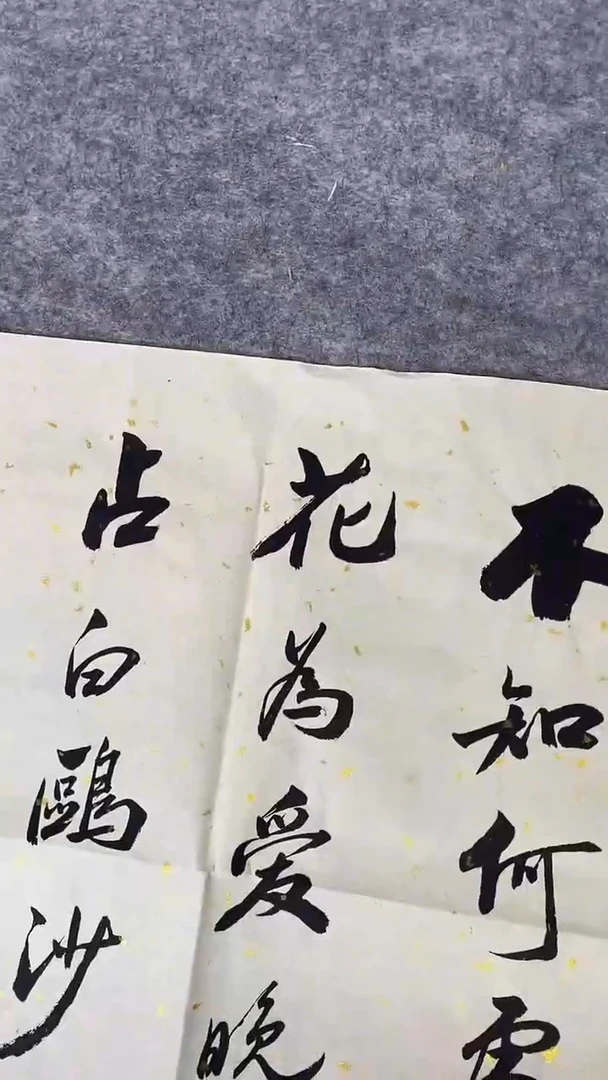 不知何
花為爱晚
占白鷗沙